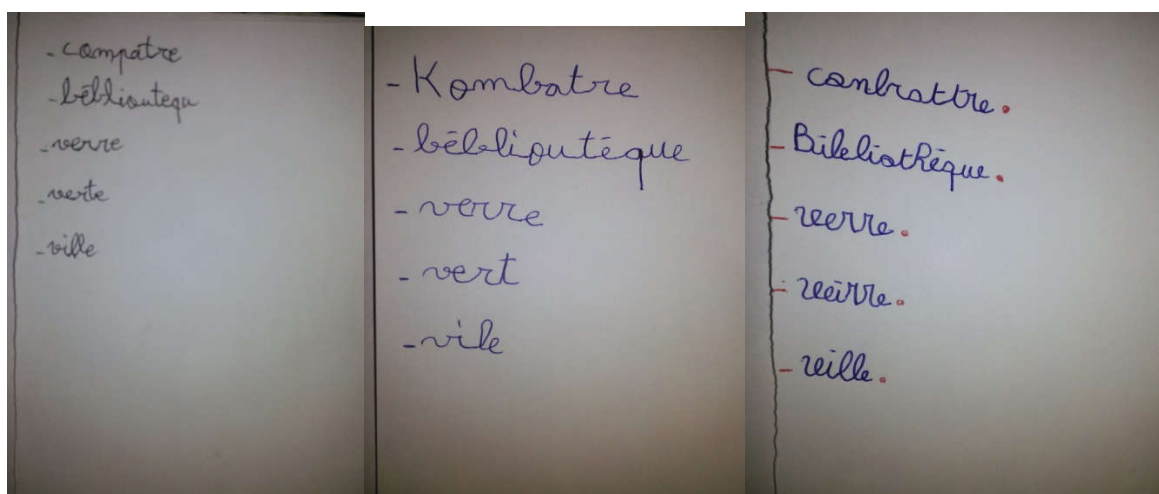 - compatre
- béblioutequ
- verre
- verte
- ville
- Kombatre
- béblioutéque
- verre
- vert
- vile
- conbrattre.
- Bibliothèque.
- verre.
- veirre.
- veille.